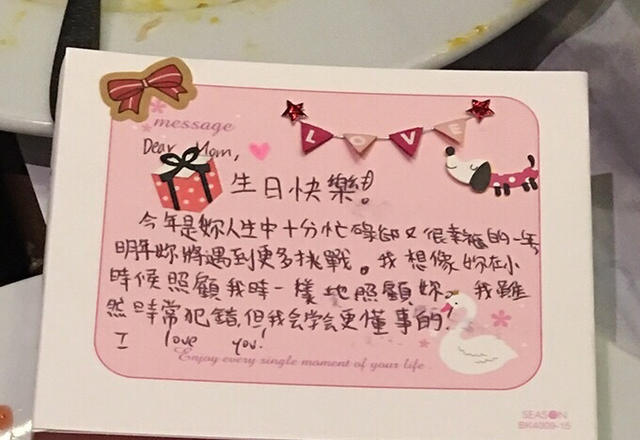 message
LOVE
Dear Mom,
生日快樂!
今年是妳人生中十分忙碌卻又很幸福的一年
明年妳將遇到更多挑戰。我想像妳在小
時候照顧我時一樣地照顧妳。我雖
然時常犯錯,但我会学会更懂事的!
I love you!
Enjoy every single moment of your life.
SEASON
BK4009-15